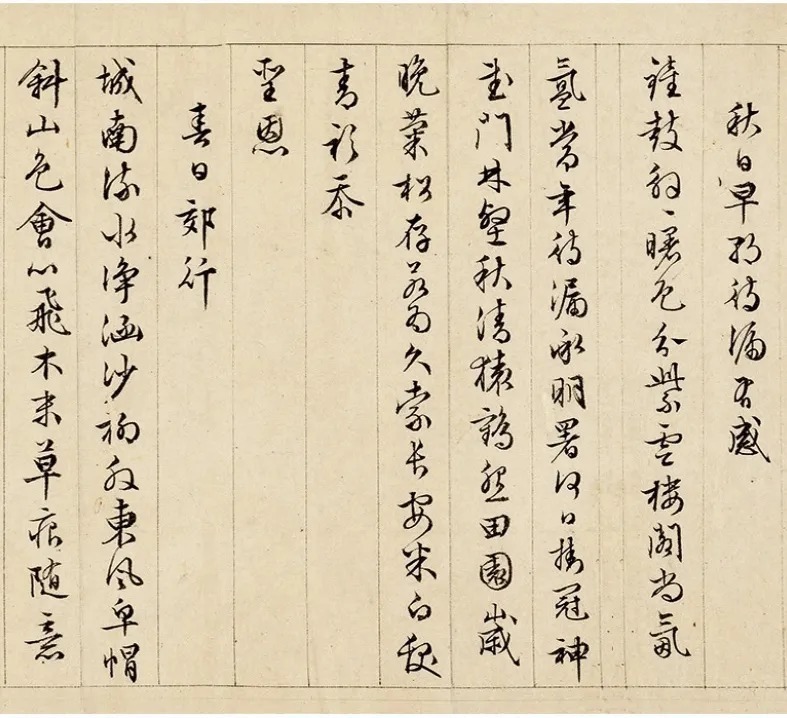 秋日早朝待漏有感
鐘鼓殷〻曙色分紫雲樓閣尚氤
氳常年待漏承明署何日掛冠神
武門林壑秋清猿鶴怨田園歲
晚菊松存若為久索長安米白髮
青衫忝
聖恩
春日郊行
城南流水淨涵沙柳外東風皁帽
斜山色會心飛木末草痕隨意